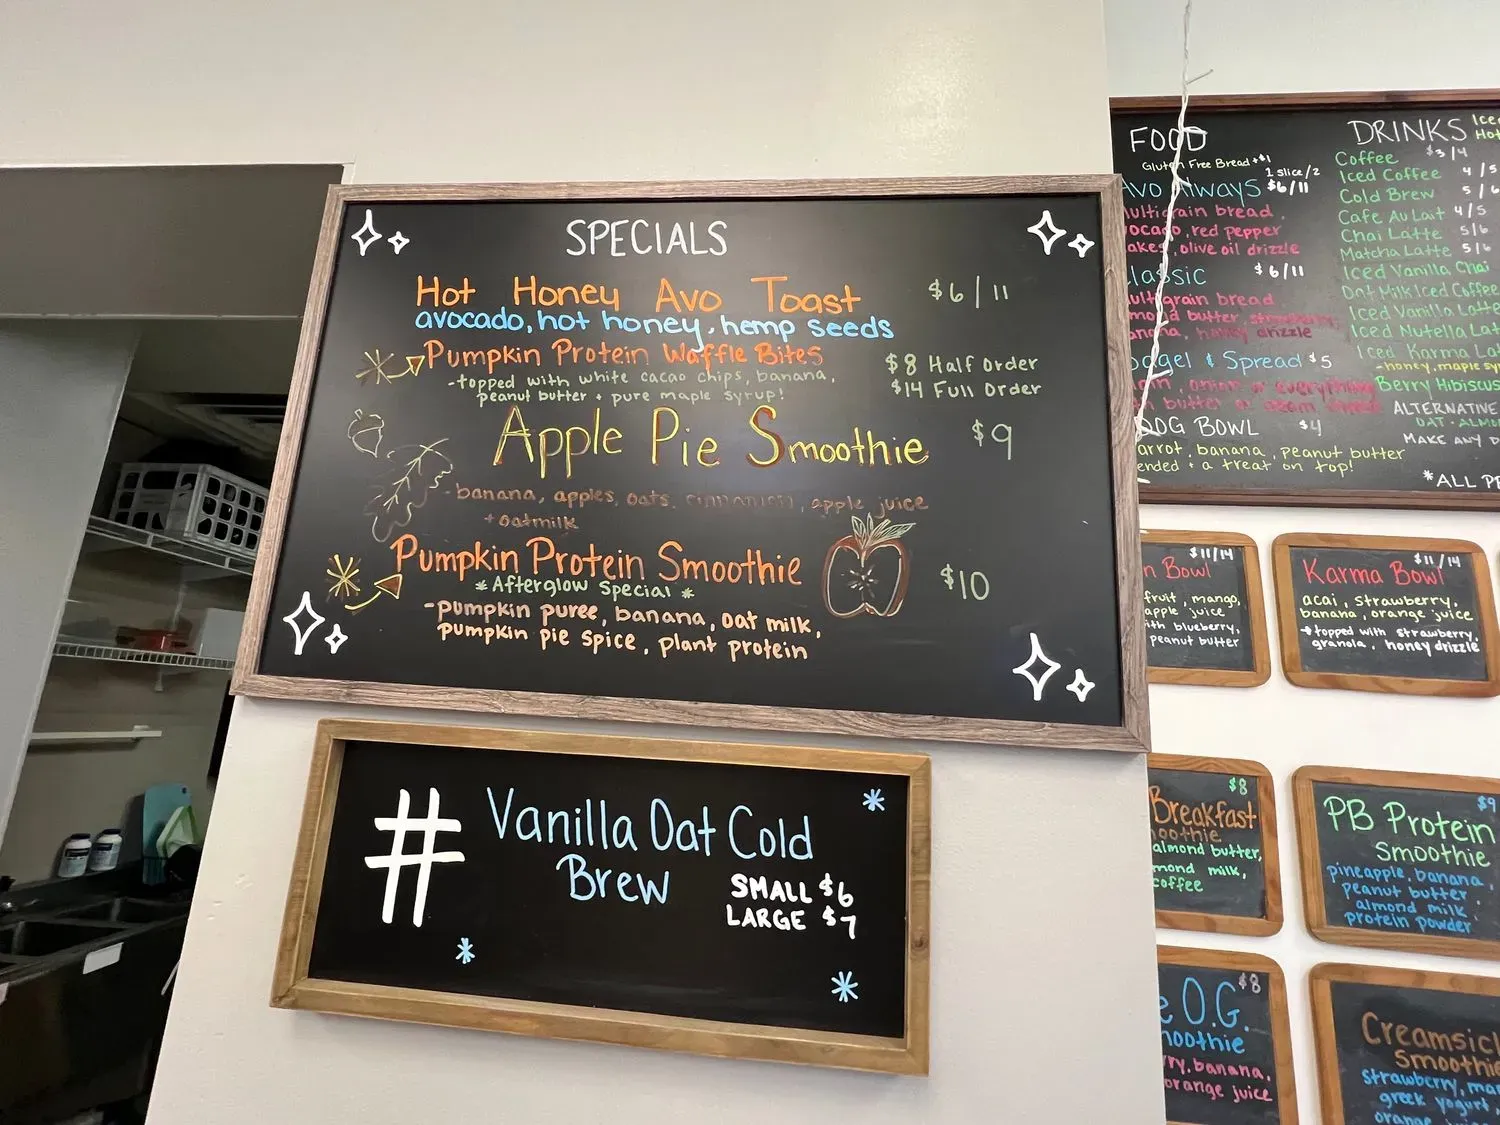 SPECIALS
Hot Honey Avo Toast $6/11
avocado, hot honey, hemp seeds
Pumpkin Protein Waffle Bites $8 Half Order
-topped with white cacao chips, banana, $14 Full Order
peanut butter + pure maple syrup!
Apple Pie Smoothie $9
-banana, apples, oats, cinnamon, apple juice
+oatmilk
Pumpkin Protein Smoothie $10
* Afterglow Special *
-pumpkin puree, banana, oat milk,
pumpkin pie spice, plant protein
# Vanilla Oat Cold
Brew
SMALL $6
LARGE $7
FOOD
Gluten Free Bread +$1
1 slice/2
Avo Always $6/11
multigrain bread,
avocado, red pepper
flakes, olive oil drizzle
Classic $6/11
multigrain bread,
almond butter, strawberry,
banana, honey drizzle
Bagel & Spread $5
plain, onion or everything
butter or
DOG BOWL $4
carrot, banana, peanut butter
blended + a treat on top!
DRINKS
Iced
Hot
Coffee $3/4
Iced Coffee 4/5
Cold Brew 5/6
Cafe Au Lait 4/5
Chai Latte 5/6
Matcha Latte 5/6
Iced Vanilla Chai
Oat Milk Iced Coffee
Iced Vanilla Latte
Iced Nutella Lat
Iced Karma La
-honey, maple sy
Berry Hibiscus
ALTERNATIVE
OAT · ALMO
MAKE ANY D
*ALL PR
$11/14
n Bowl
fruit, mango,
apple juice
with blueberry,
peanut butter
$11/14
Karma Bowl
acai, strawberry,
banana, orange juice
topped with strawberry,
granola, honey drizzle
$8
Breakfast
moothie
almond butter,
mond milk,
coffee
$9
PB Protein
Smoothie
pineapple, banana,
peanut butter,
almond milk,
protein powder
$8
e O.G.
moothie
rry, banana,
orange juice
Creamsicl
Smoothie
strawberry, man
greek yogurt,
orange